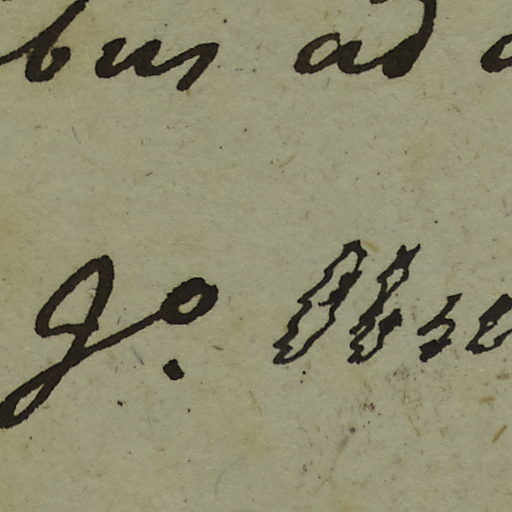 bus ad
9o. Obse